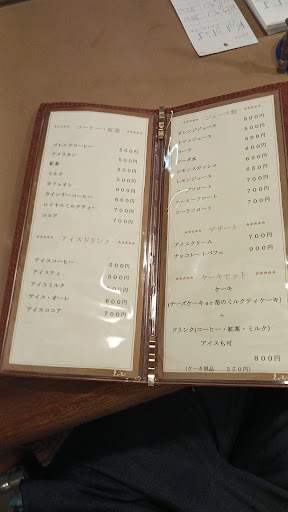 ***** コーヒー・紅茶 *****
ブレンドコーヒー 500円
アメリカン 500円
紅茶 500円
ミルク 500円
カフェオレ 600円
ウインナーコーヒー 600円
ロイヤルミルクティー 700円
ココア 700円
***** アイスドリンク *****
アイスコーヒー
アイスティ 500円
アイスミルク 500円
アイス・オーレ 600円
アイスココア 700円
***** ジュース類 *****
オレンジジュース 500円
トマトジュース 500円
500円
ソーダ水
レモンスカッシュ
レモンジュース 700円
コーヒーフロート 700円
コーラフロート 700円
***** デザート *****
アイスクリーム 700円
チョコレートパフェ 900円
***** ケーキセット *****
ケーキ
(チーズケーキor苺のミルクティケーキ)
+
ドリンク(コーヒー・紅茶・ミルク)
アイスも可
800円
(ケーキ単品 350円)